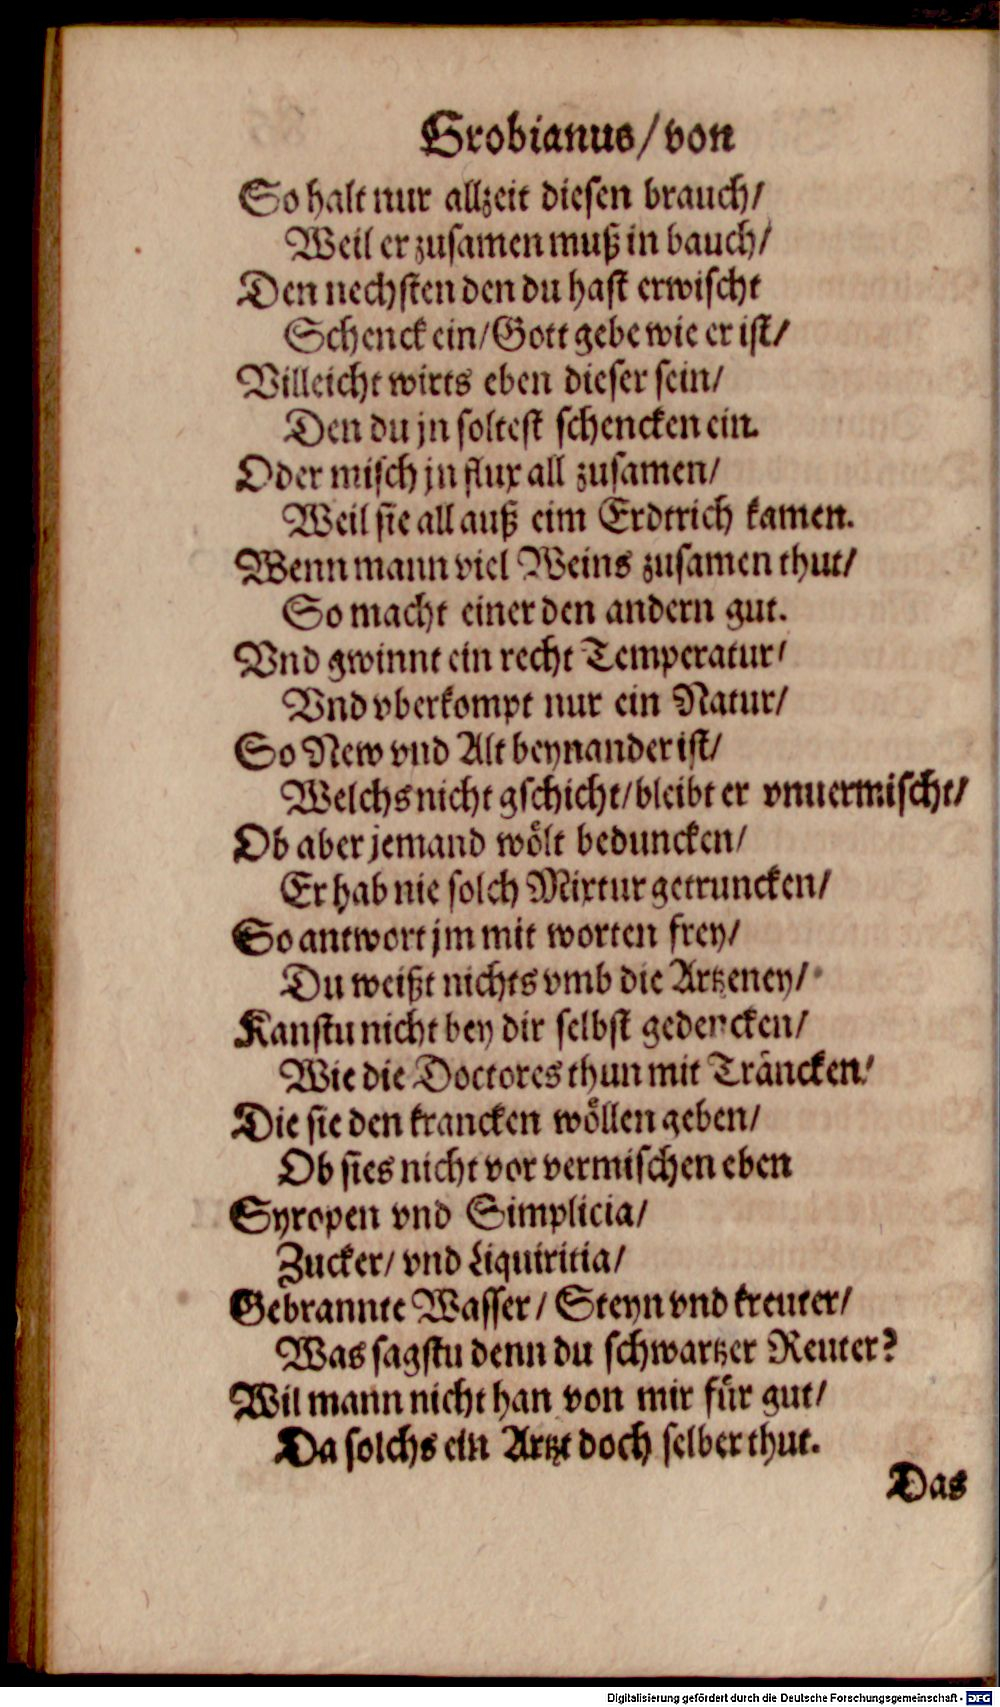 Grobianus/ von
So halt nur allzeit diesen brauch/
Weil er zusamen muß in bauch/
Den nechsten den du hast erwischt
Schenck ein/ Gott gebe wie er ist/
Villeicht wirts eben dieser sein/
Den du jn soltest schencken ein.
Oder misch jn flux all zusamen/
Weil sie all auß eim Erdtrich kamen.
Wenn mann viel Weins zusamen thut/
So macht einer den andern gut.
Vnd gwinnt ein recht Temperatur/
Vnd vberkompt nur ein Natur/
So New vnd Alt beynander ist/
Welchs nicht gschicht/ bleibt er vnuermischt/
Ob aber jemand wölt beduncken/
Er hab nie solch Mixtur getruncken/
So antwort jm mit worten frey/
Du weißt nichts vmb die Artzeney/
Kanstu nicht bey dir selbst gedencken/
Wie die Doctores thun mit Träncken/
Die sie den krancken wöllen geben/
Ob sies nicht vor vermischen eben
Syropen vnd Simplicia/
Zucker/ vnd Liquiritia/
Gebrannte Wasser/ Steyn vnd kreuter/
Was sagstu denn du schwartzer Reuter?
Wil mann nicht han von mir für gut/
Da solchs ein Artzt doch selber thut.
Das
Digitalisierung gefördert durch die Deutsche Forschungsgemeinschaft - DFG